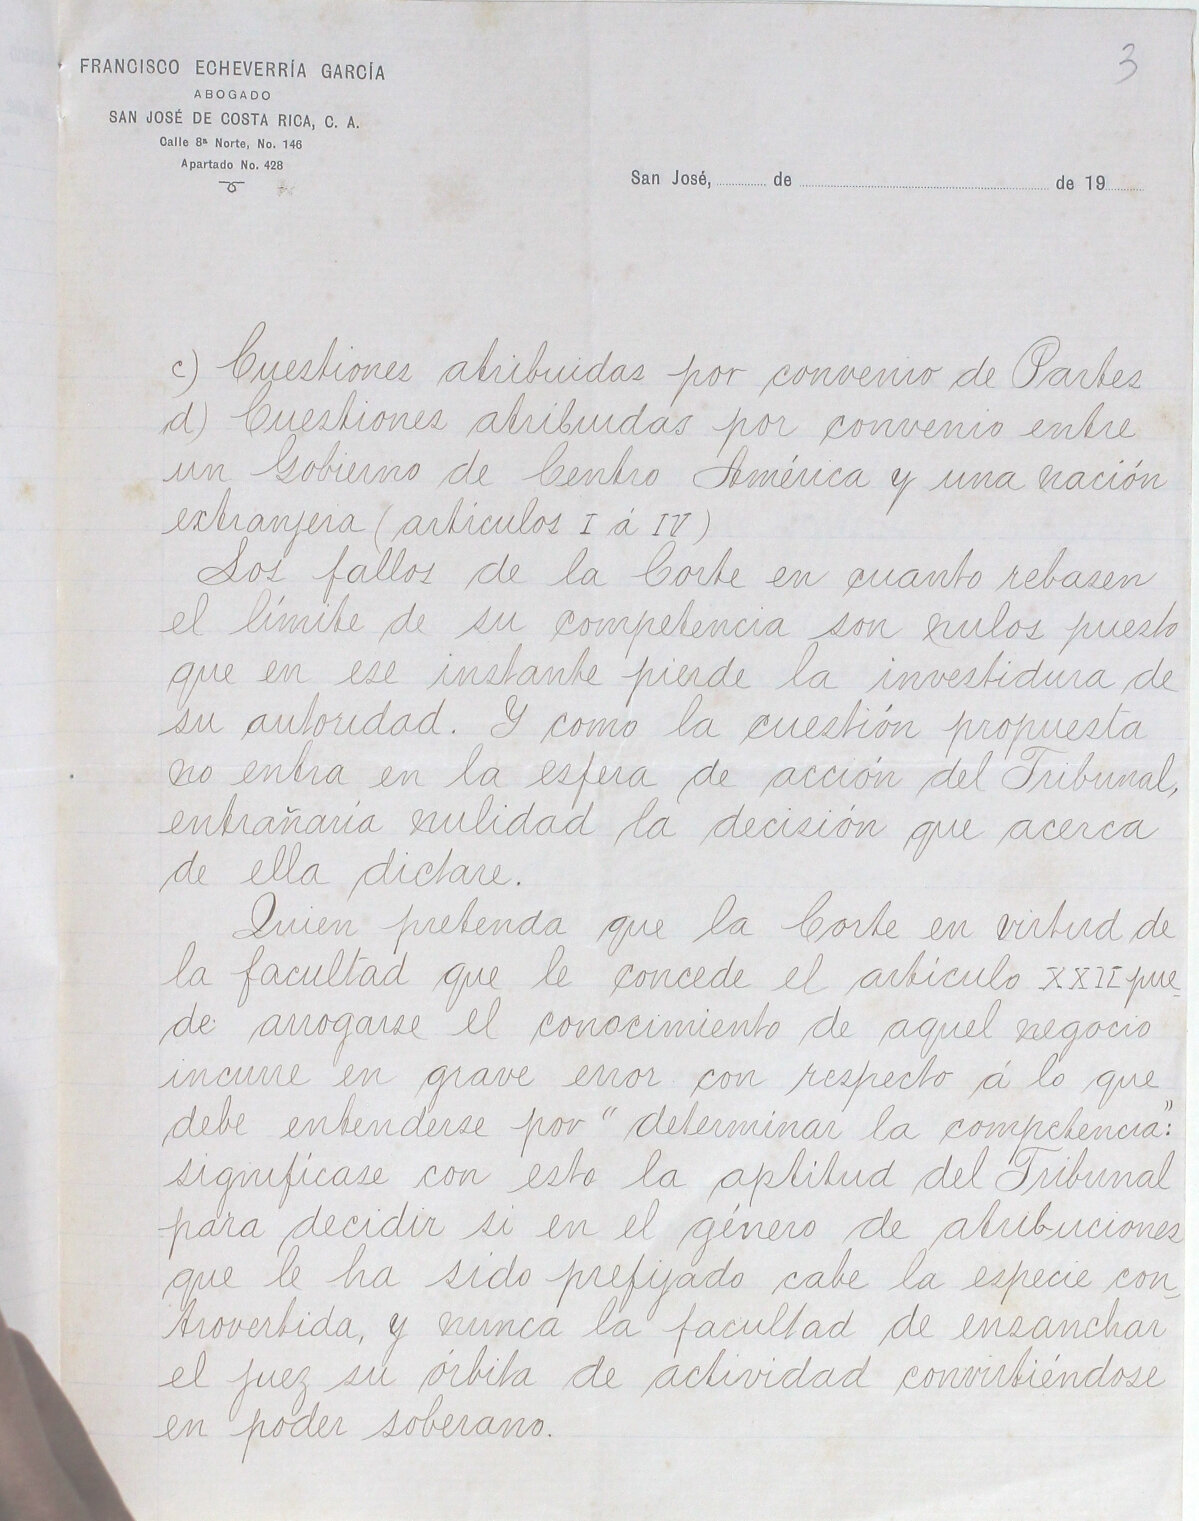 3
FRANCISCO ECHEVERRÍA GARCÍA
ABOGADO
SAN JOSÉ DE COSTA RICA, C. A.
Calle 8ª Norte, No. 146
Apartado No. 428
San José, ........ de ................................ de 19......
c) Cuestiones atribuidas por convenio de Partes
d) Cuestiones atribuidas por convenio entre
un Gobierno de Centro América y una nación
extranjera (artículos I á IV)
Los fallos de la Corte en cuanto rebasen
el límite de su competencia son nulos puesto
que en ese instante pierde la investidura de
su autoridad. Y como la cuestión propuesta
no entra en la esfera de acción del Tribunal,
entrañaría nulidad la decisión que acerca
de ella dictare.
Quien pretenda que la Corte en virtud de
la facultad que le concede el artículo XXII pue-
de arrogarse el conocimiento de aquel negocio
incurre en grave error con respecto á lo que
debe entenderse por "determinar la competencia":
significase con esto la aptitud del Tribunal
para decidir si en el género de atribuciones
que le ha sido prefijado cabe la especie con-
trovertida, y nunca la facultad de ensanchar
el juez su órbita de actividad convirtiéndose
en poder soberano.